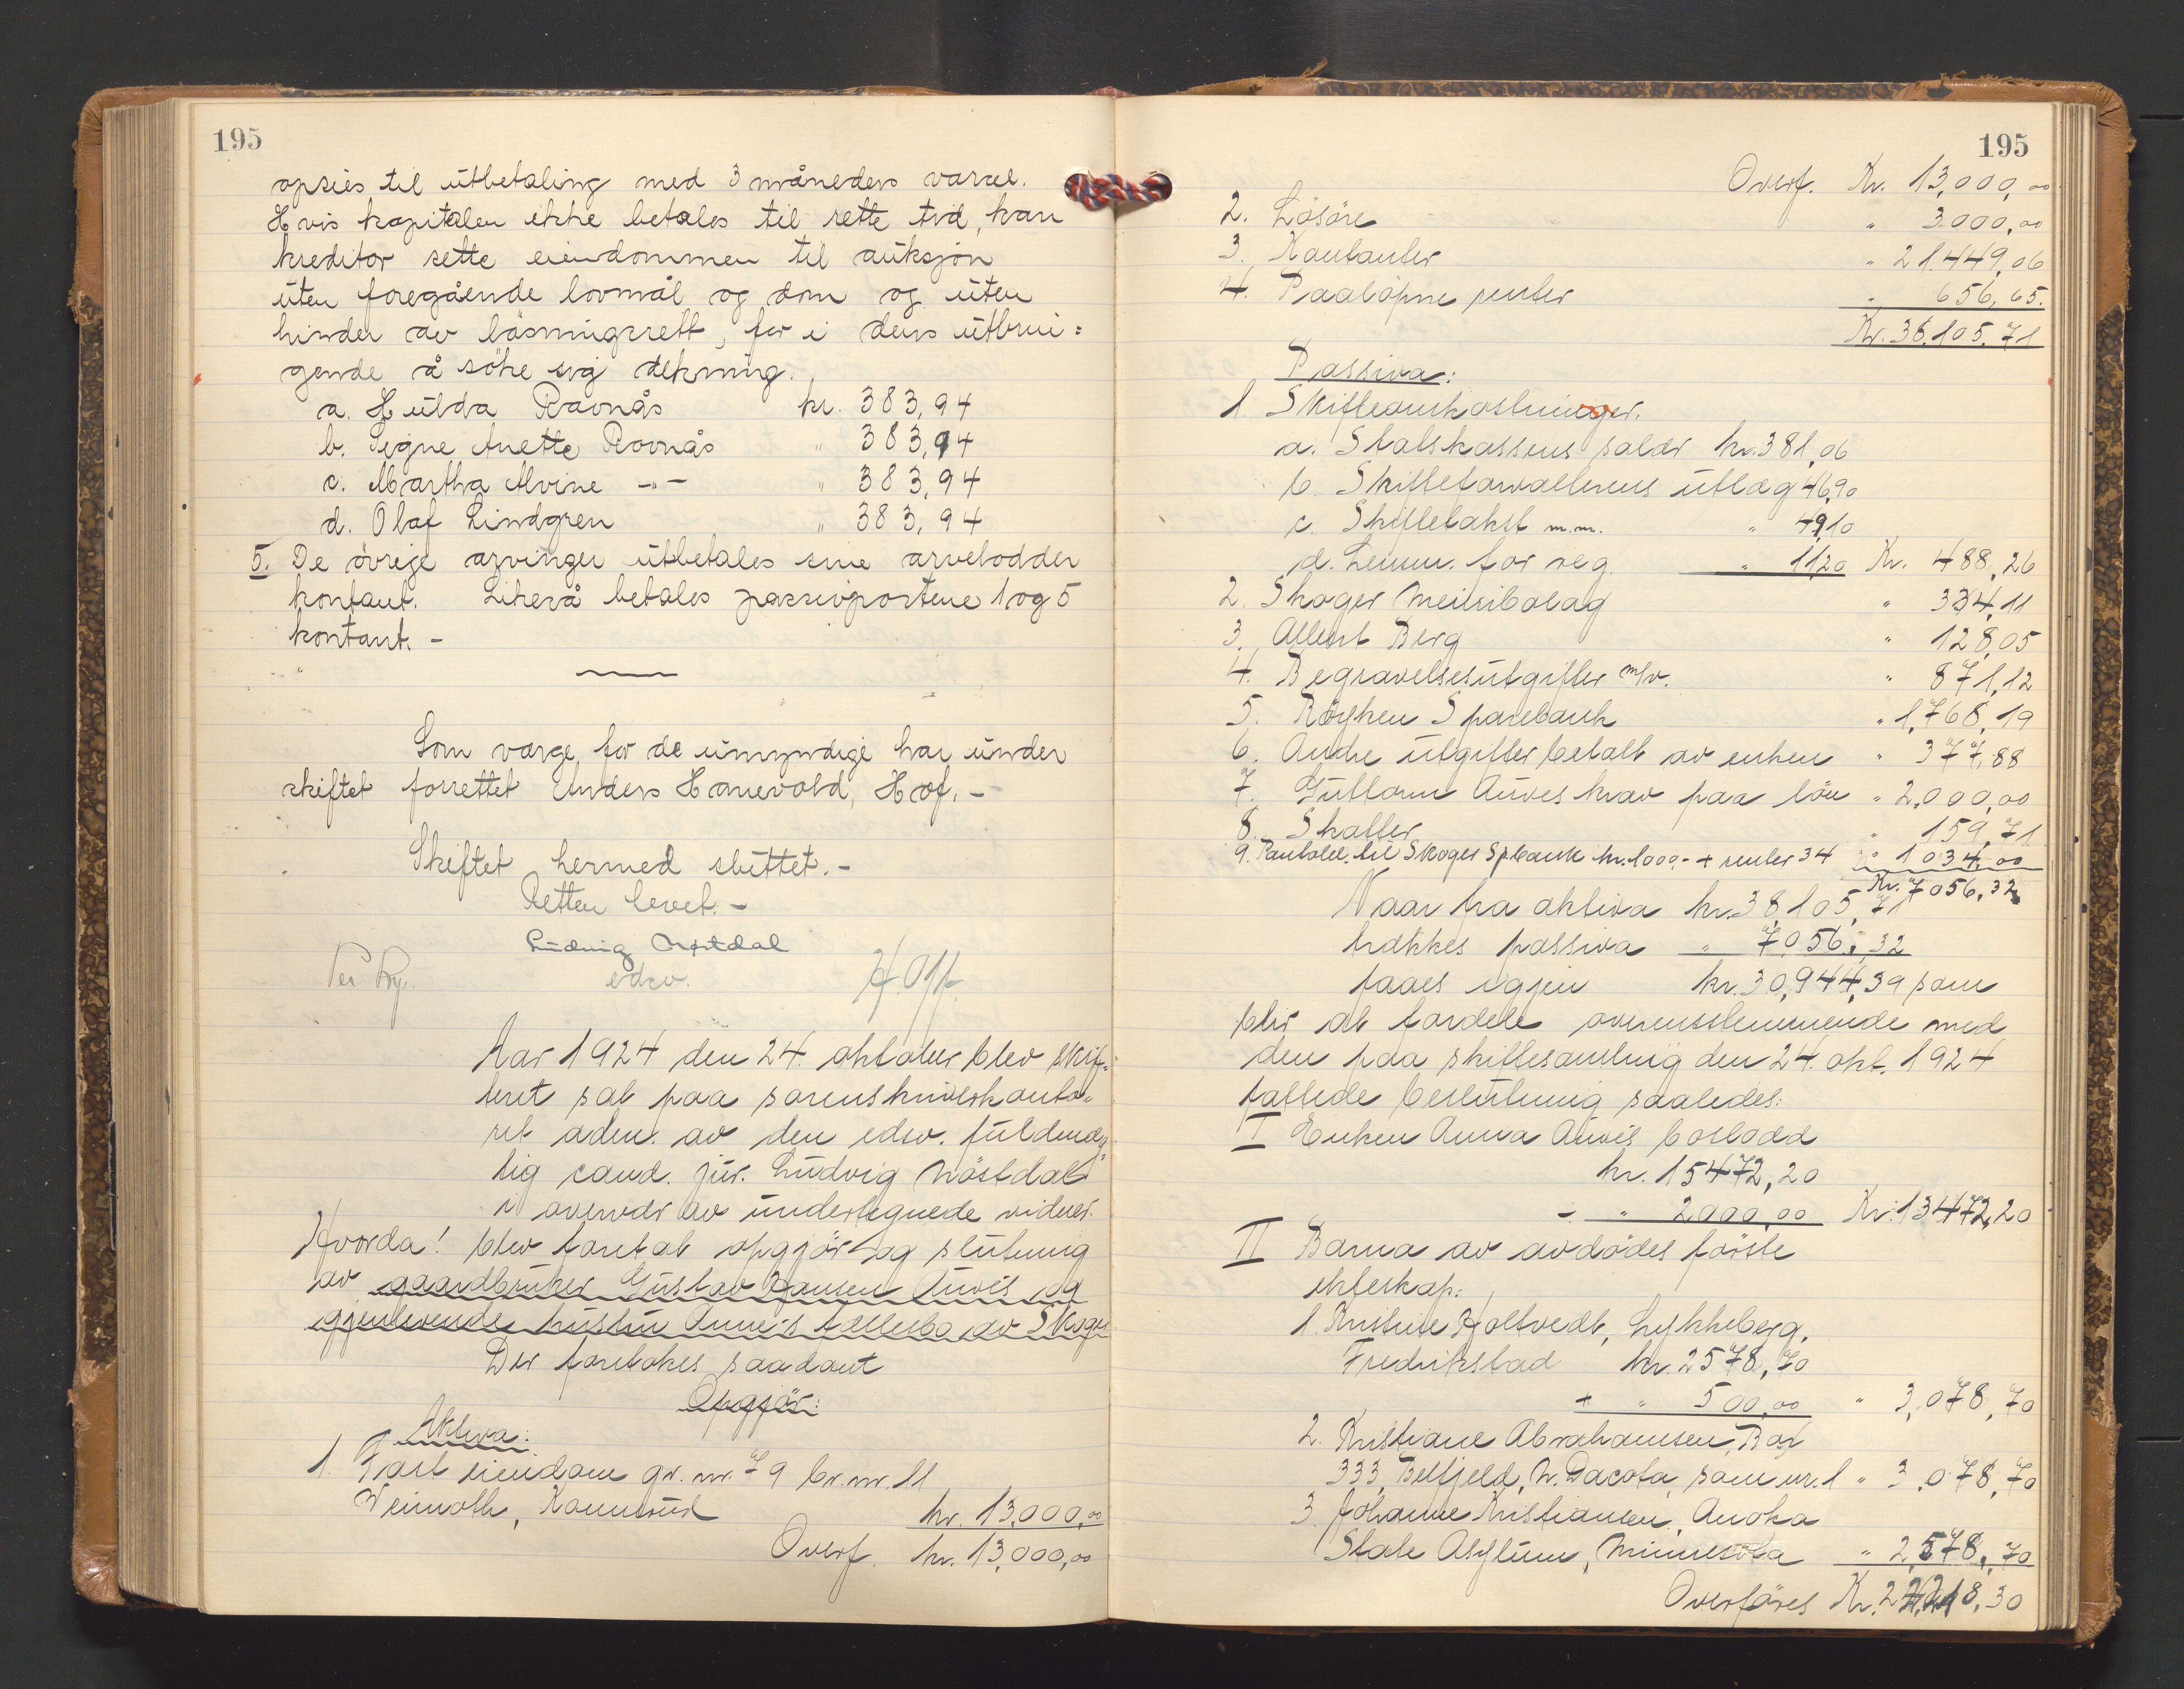 195
opsies til utbetaling med 3 måneders varsel.
Hvis kapitalen ikke betales til rette tid, kan
kreditor sette eiendommen til auksjon
uten foregående lovmål og dom og uten
hinder av løsningsrett, for i dens utbrin=
gende å søke sig dekning.
a. Hulda Ravnås kr. 383,94
b. Signe Anette Ravnås " 383,94
c. Martha Alvine -"- " 383,94
d. Olaf Lindgren " 383,94
5. De øvrige arvinger utbetales sine arvelodder
kontant. Likeså betales passivpostene 1 og 5
kontant. -
Som verge for de umyndige har under
skiftet forrettet Anders Hanevold, Hof. -
Skiftet hermed sluttet. -
Retten hevet. -
Ludvig
edsv.
Aar 1924 den 24. oktober blev skif-
teret sat paa sorenskriverkonto-
ret adm. av den edsv. fuldmæg-
tig cand. jur. Ludvig Nöstdal
i overvær av undertegnede vidner.
Hvorda! blev foretat opgjör og slutning
av gaardbruker Gustav Hansen Auvés og
gjenlevende hustru Anne's fællesbo av Skoger
Der foretokes saadant
Opgjör:
Aktiva:
1. Fast eiendom gr. nr. 79 br. nr. 11
Weimoth, Konnerud kr. 13,000,00
Overf. kr. 13,000,00
195
Overf. Kr. 13,000,00
2. Lösöre " 3.000,00
3. Kontanter " 21.449,06
4. Paalöpne renter " 656,65.
Kr. 38.105,71
Passiva:
1 Skifteomkostninger.
a. Statskassens salær kr. 381,06
b. Skifteforvalterens utlæg 46,90
c. Skiftetakst m.m. " 49,10
d. Lemm. for reg. " 11,20 Kr. 488,26
2. Skoger Meieribolag " 334,11
3. Albert Berg " 128,05
4. Begravelsesutgifter m/v. " 871,12
5. Röyken Sparebank " 1,768,19
6. Andre utgifter betalt av enken " 377,88
7. Guttorm Auves krav paa lön " 2,000,00
8. Skatter " 159,71
9. Pantobl. til Skoger Spbank kr. 1000,- + renter 34 " 1034,00
Kr. 7056,32
Naar fra aktiva kr. 38,105,71
trækkes passiva " 7056,32
faaes igjen kr. 30,944,39 som
blir at fordele overensstemmende med
den paa skiftesamling den 24. okt. 1924
fattede beslutning saaledes:
I Enken Anna Auvés boslodd
kr. 15472,20
- " 2000,00 Kr. 13472,20
II Barna av avdödes förste
ekteskap:
1. Kristine Holtvedt, Lykkeberg,
Fredrikstad kr. 2578,70
+ " 500,00 " 3,078,70
2. Kristiane Abrahamsen, Box
333, Belfjeld, N. Dacota, som nr. 1 " 3,078,70
3 Johanne Kristiansen, Anoka
State Asylum, Minnesota " 2,578,70
Overföres Kr. 22,218,30